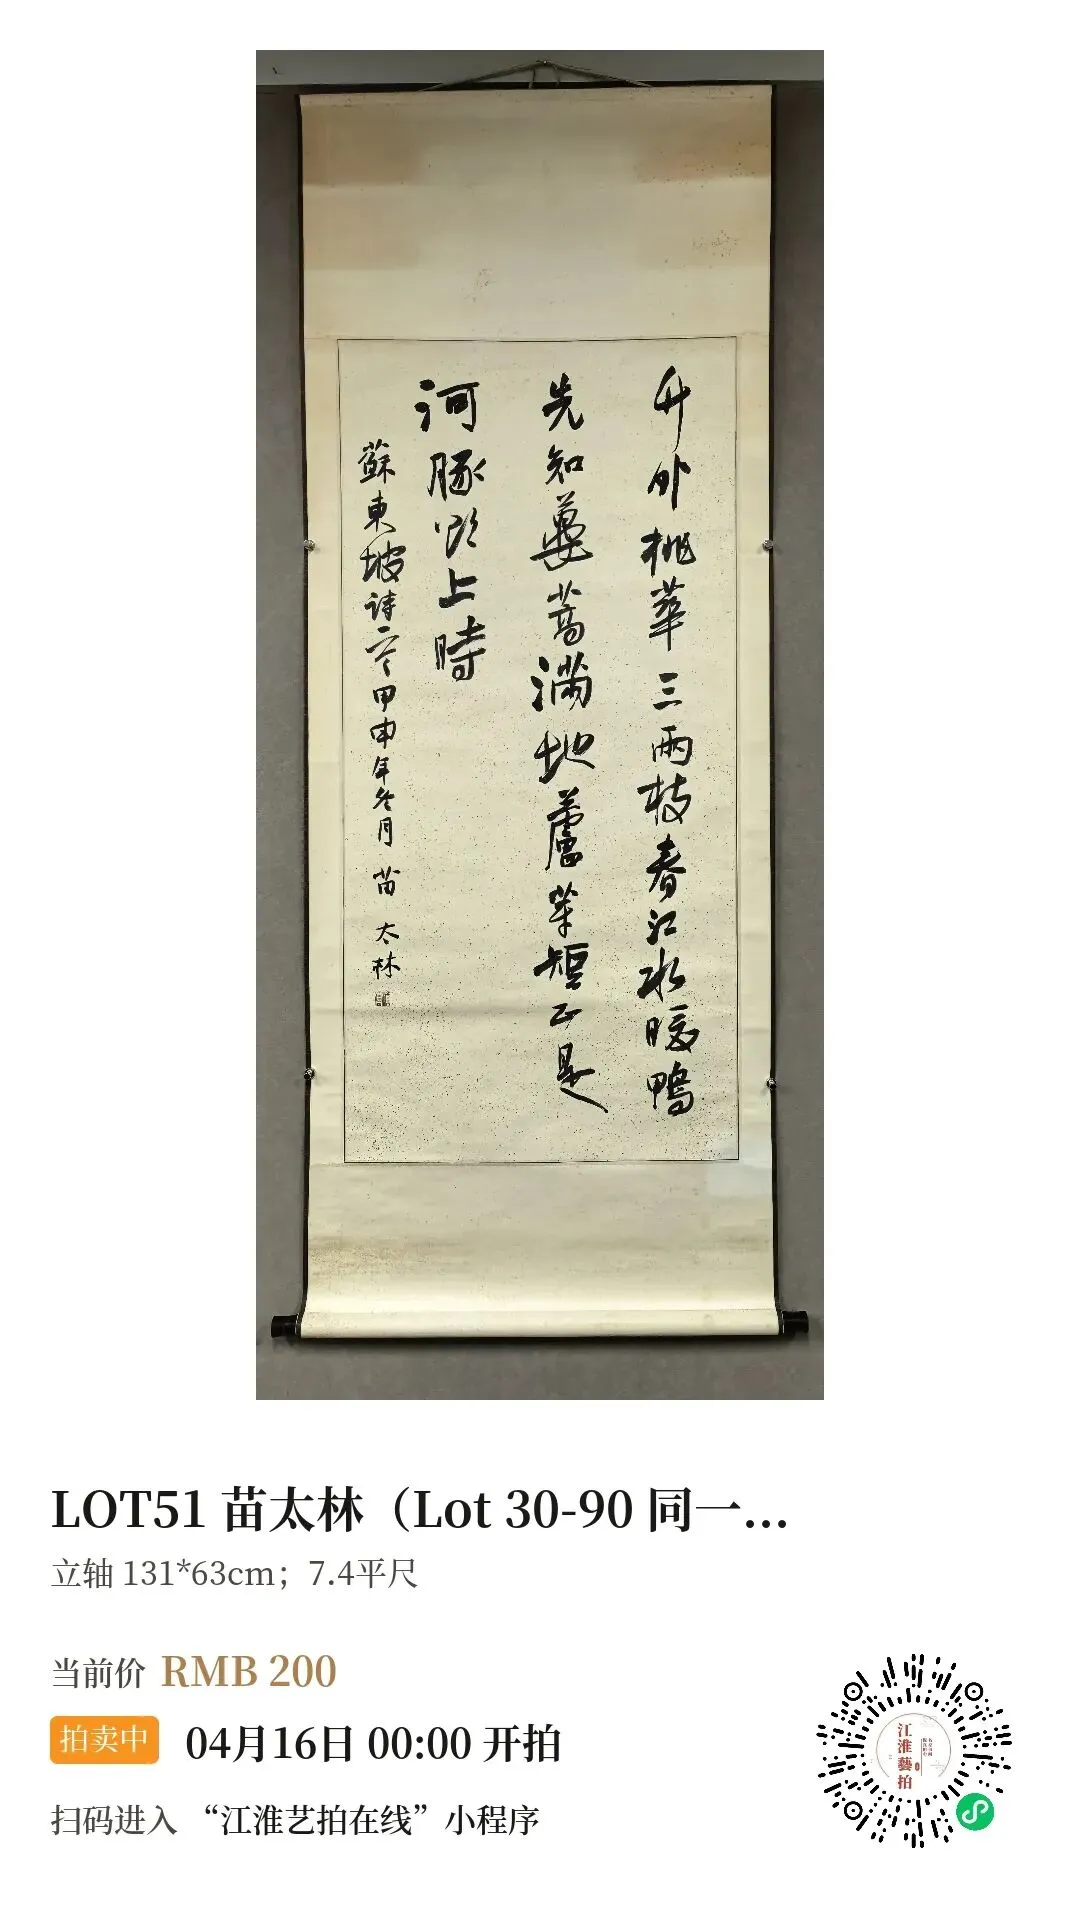 竹外桃華三兩枝春江水暖鴨
先知蔞蒿滿地蘆芽短正是
河豚欲上時
蘇東坡詩一首甲申年冬月 苗太林
LOT51 苗太林（Lot 30-90 同一...
立轴 131*63cm；7.4平尺
当前价 RMB 200
拍卖中 04月16日 00:00 开拍
扫码进入 “江淮艺拍在线”小程序
江淮藝拍